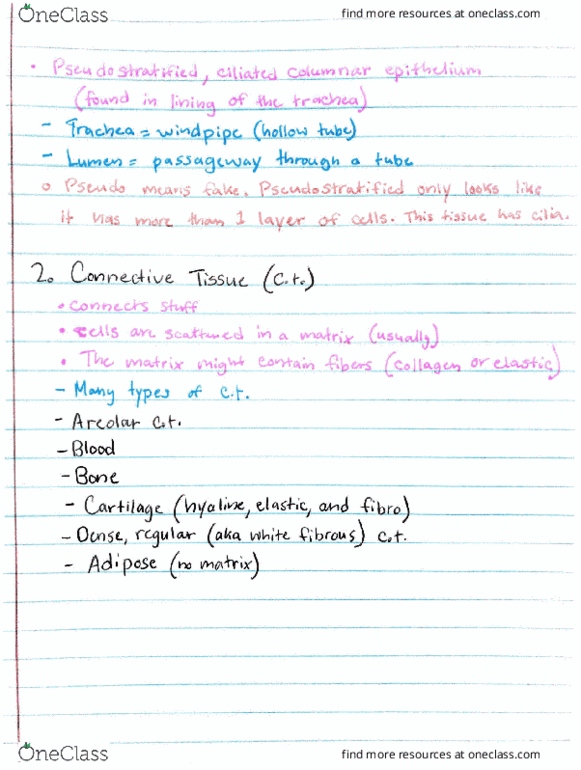 OneClass find more resources at oneclass.com
• Pseudostratified, ciliated columnar epithelium
(found in lining of the trachea)
- Trachea = windpipe (hollow tube)
- Lumen = passageway through a tube
o Pseudo means fake. Pseudostratified only looks like
it has more than 1 layer of cells. This tissue has cilia.
2. Connective Tissue (C.t.)
• connects stuff
• cells are scattered in a matrix (usually)
• The matrix might contain fibers (collagen or elastic)
- Many types of c.t.
- Areolar c.t.
- Blood
- Bone
- Cartilage (hyaline, elastic, and fibro)
- Dense, regular (aka white fibrous) c.t.
- Adipose (no matrix)
OneClass find more resources at oneclass.com